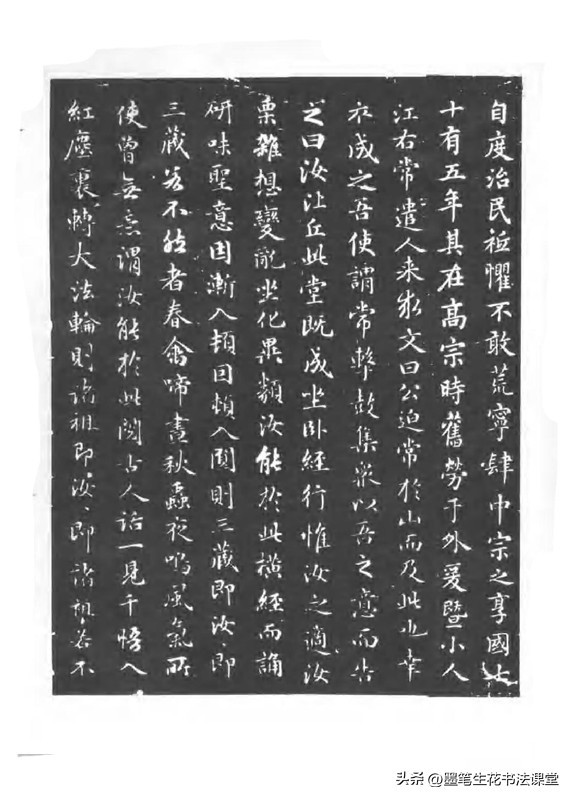 自度治民祗懼不敢荒寧肆中宗之享國七
十有五年其在高宗時舊勞于外爰暨小人
江右常遣人来求文曰公迫常於山而及此也幸
成之吾使謂常擊鼓集衆以吾之意而告
之曰汝比丘此堂既成坐卧經行惟汝之適汝
雜想變亂坐化異類汝能於此横經而誦
研味聖意因漸入頓因頓入圓則三藏即汝、即
三藏若不然者春禽啼晝秋蟲夜鳴風氣所
使曾無意謂汝能於此閱古人話一見千悟入
紅塵裏轉大法輪則諸祖即汝、即諸祖若不
头条 @墨笔生花书法课堂